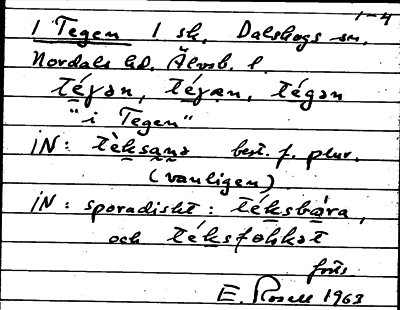 1-4
1 Tegen 1 sk. Dalskogs sn.
Nordals hd. Älvsb. l.
tégən, tégən, tégən
"i Tegen"
iN: tèksaṇə best. f. plur.
(vanligen)
iN: sporadiskt: téksbára,
och téksfohkət
forts.
E. Rosell 1963